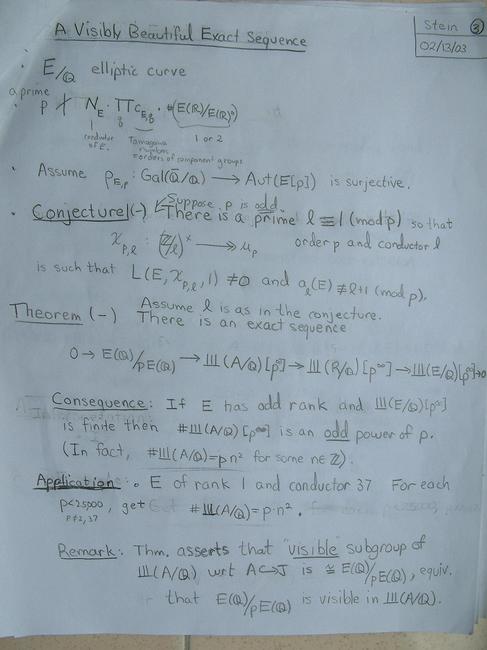 A Visibly Beautiful Exact Sequence
Stein ③
02/13/03
• E/ℚ elliptic curve
a prime
• p ∤ N_E · ∏ c_{E,q} · #(E(ℝ)/E(ℝ)⁰)
conductor of E.
Tamagawa numbers = orders of component groups
1 or 2
• Assume ρ_{E,p} : Gal(Q̄/ℚ) → Aut(E[p]) is surjective.
Suppose p is odd.
• Conjecture 1 (-) There is a prime ℓ ≡ 1 (mod p) so that
χ_{p,ℓ} : (ℤ/ℓ)^× ↠ μ_p order p and conductor ℓ
is such that L(E, χ_{p,ℓ}, 1) ≠ 0 and a_ℓ(E) ≢ ℓ+1 (mod p).
Assume ℓ is as in the conjecture.
Theorem (-) There is an exact sequence
0 → E(ℚ)/pE(ℚ) → Ш(A/ℚ)[p^∞] → Ш(R/ℚ)[p^∞] → Ш(E/ℚ)[p^∞] → 0
Consequence: If E has odd rank and Ш(E/ℚ)[p^∞]
is finite then #Ш(A/ℚ)[p^∞] is an odd power of p.
(In fact, #Ш(A/ℚ) = p n² for some n ∈ ℤ).
Application: • E of rank 1 and conductor 37 For each
p<25,000, get #Ш(A/ℚ) = p·n².
p≠2,37
Remark: Thm. asserts that "visible" subgroup of
Ш(A/ℚ) wrt A↪J is ≅ E(ℚ)/pE(ℚ), equiv.
that E(ℚ)/pE(ℚ) is visible in Ш(A/ℚ).